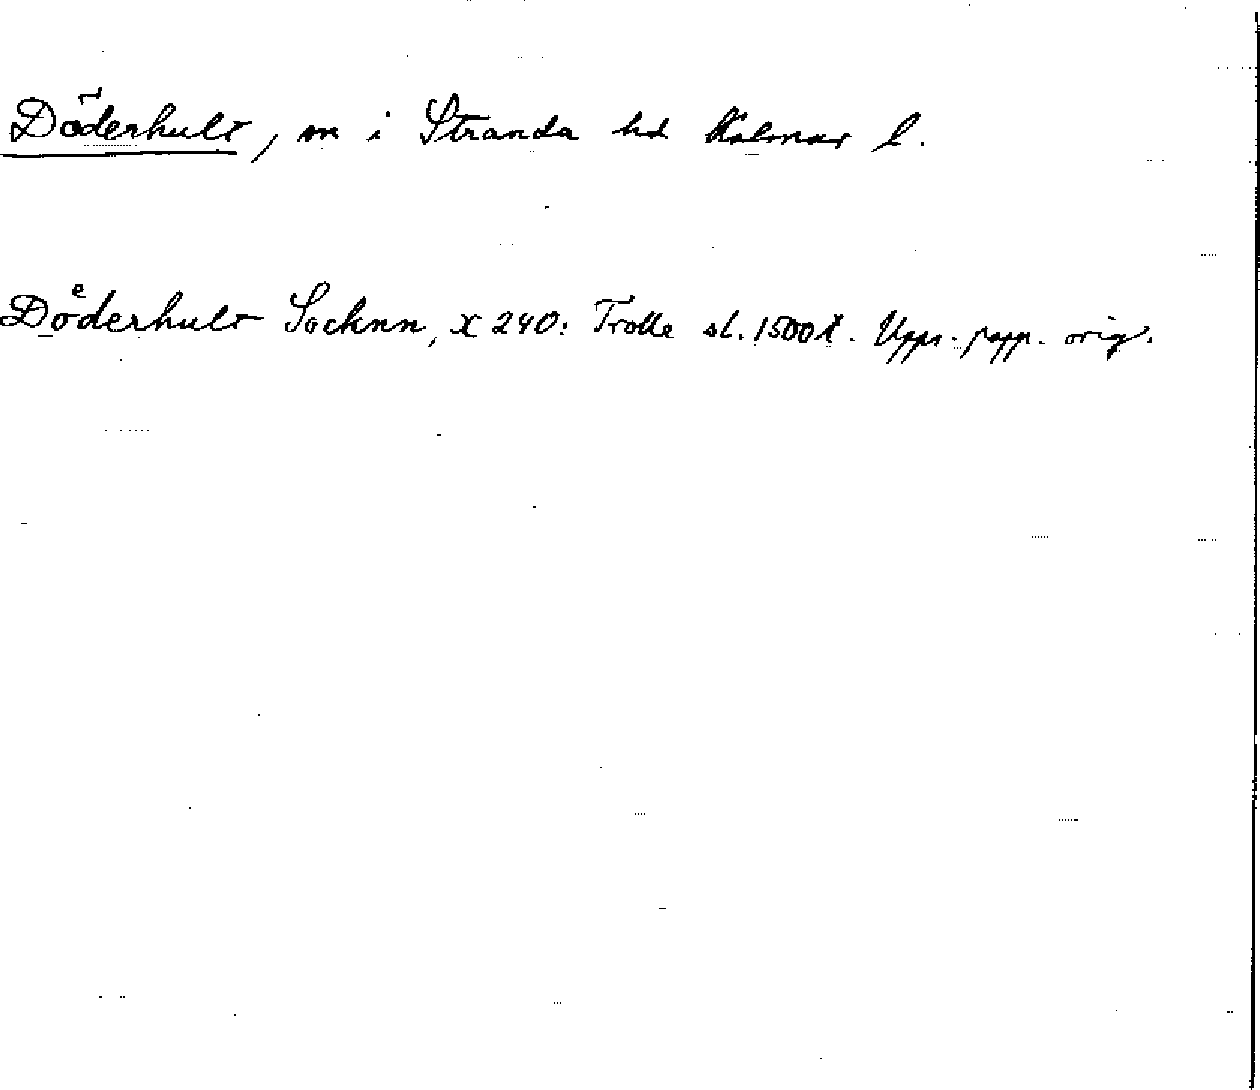 Döderhult, sn i Stranda hd Kalmar l.
Doͤderhult Socknn, X 240: Trolle sl. 1500 t. Upps. papp. orig.